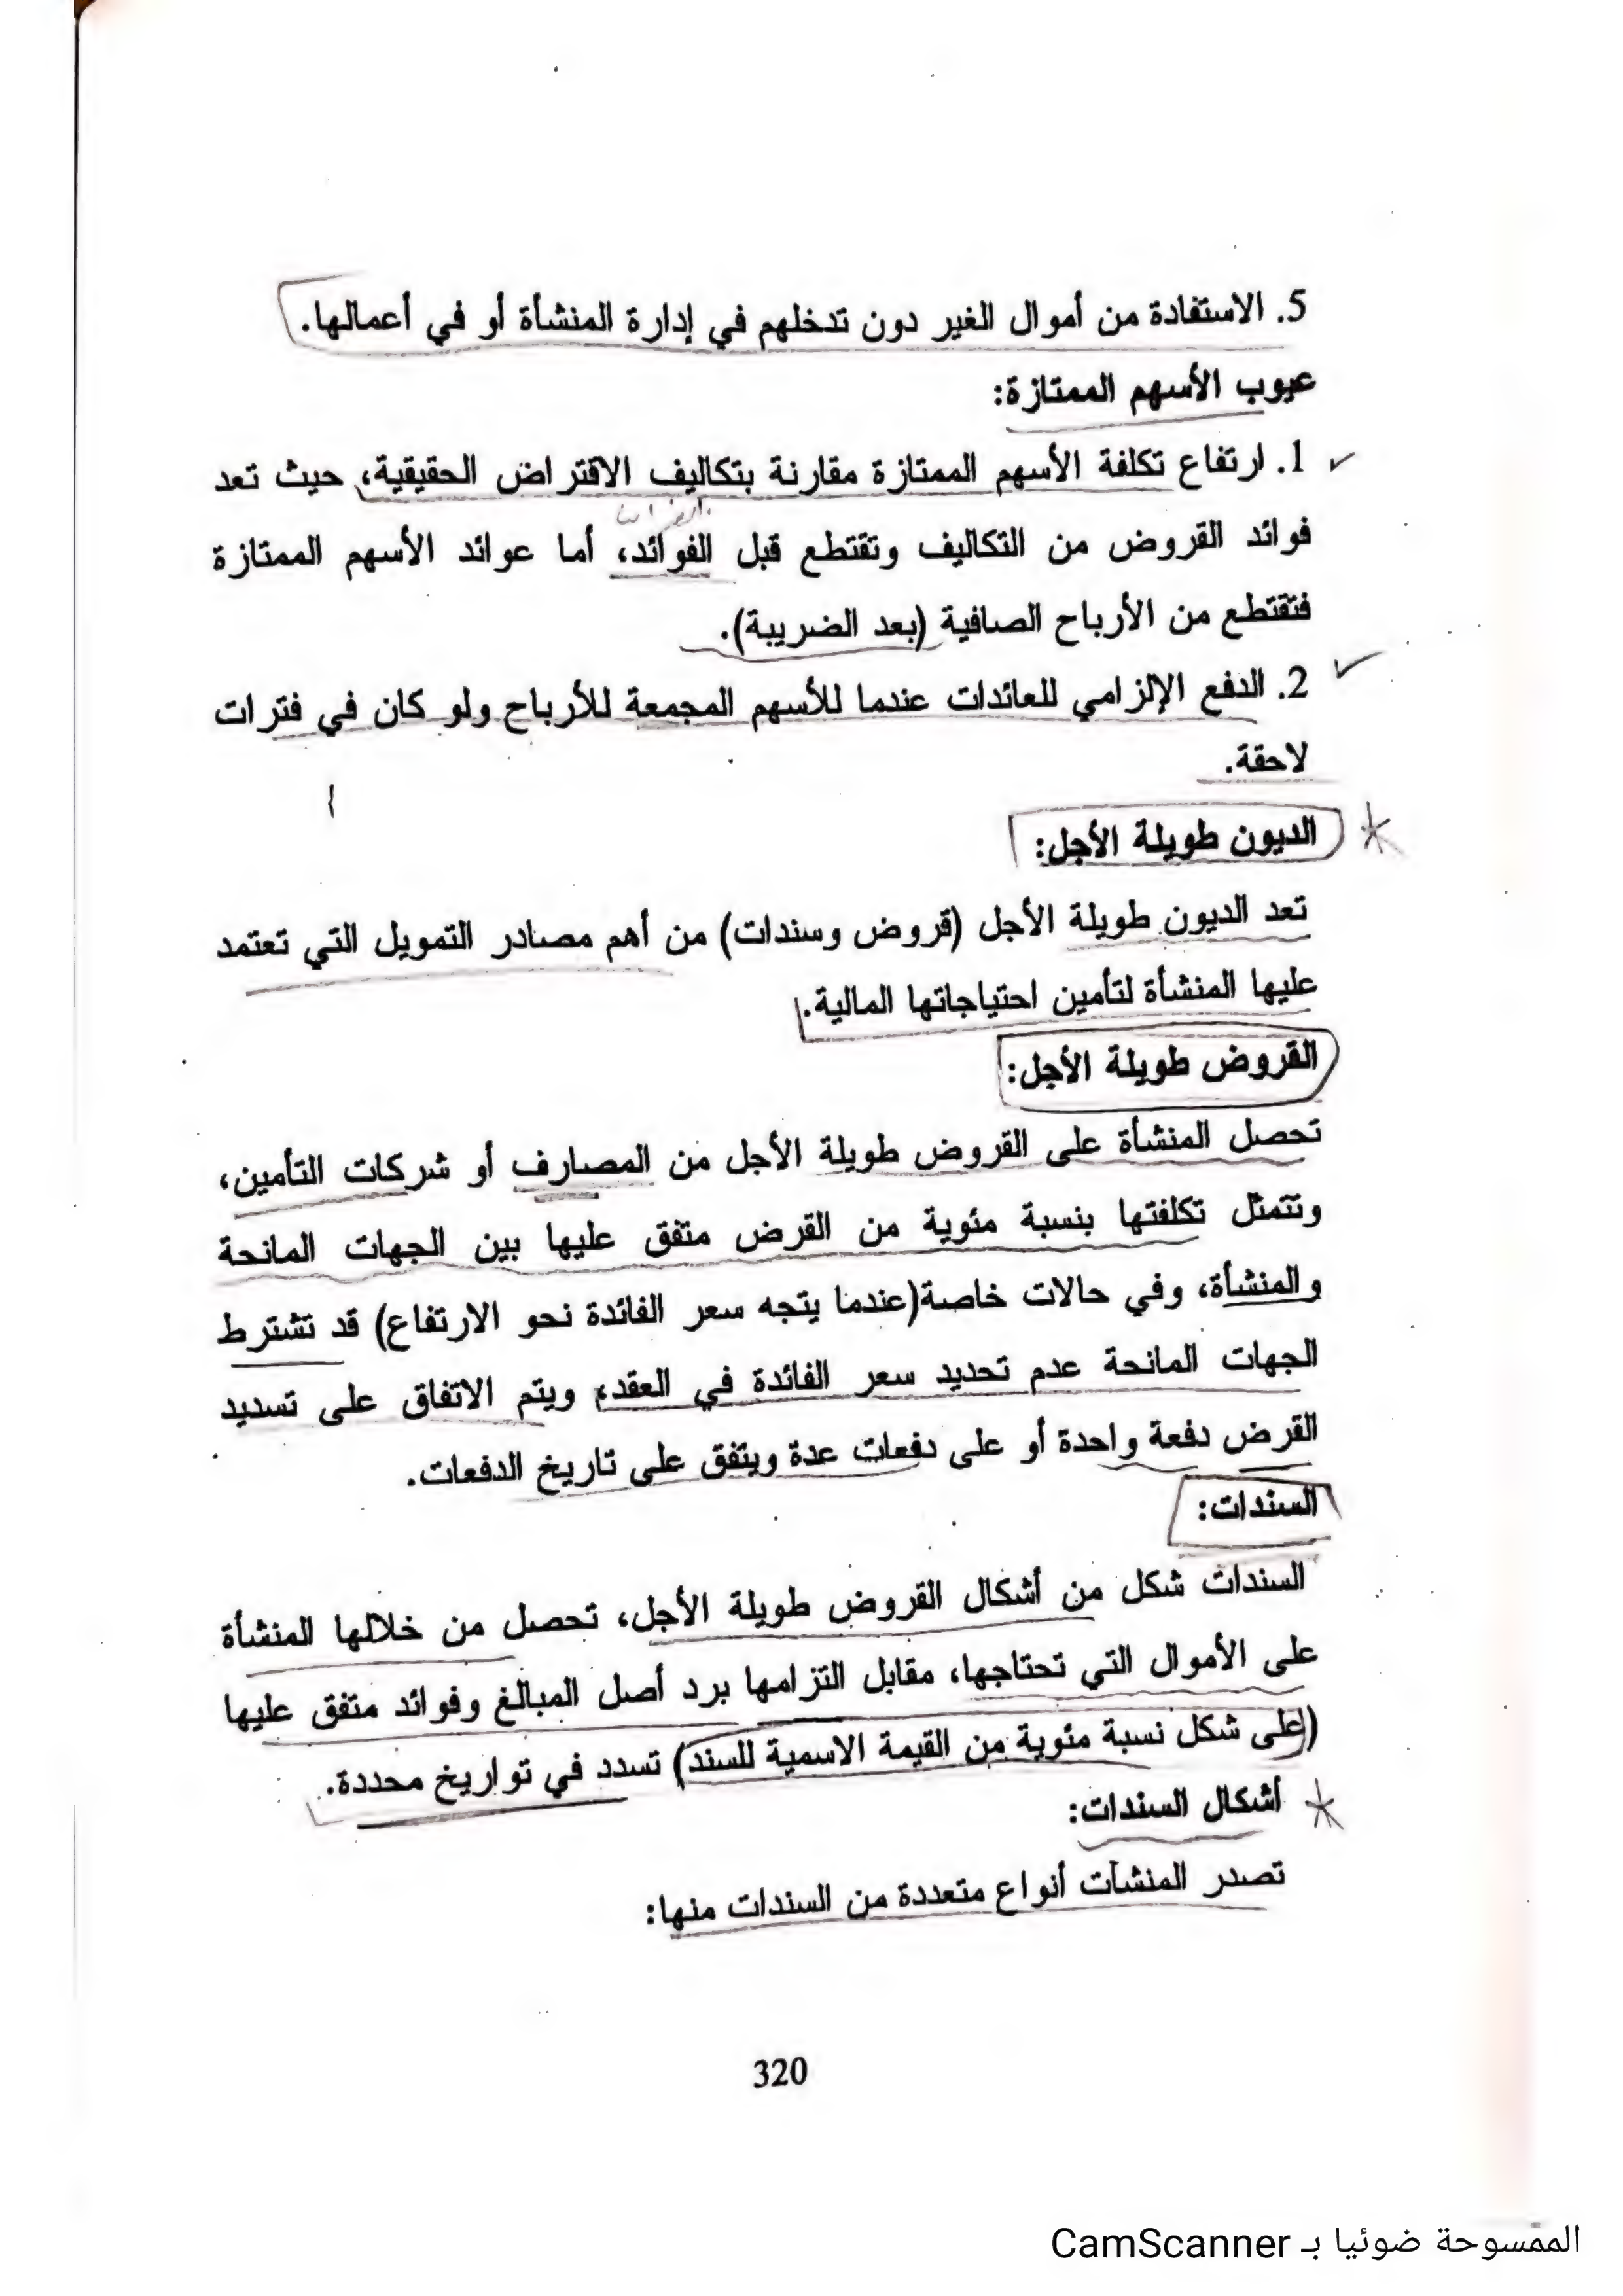 5. الاستفادة من أموال الغير دون تدخلهم في إدارة المنشأة أو في أعمالها.
عيوب الأسهم الممتازة:
1. ارتفاع تكلفة الأسهم الممتازة مقارنة بتكاليف الاقتراض الحقيقية، حيث تعد
فوائد القروض من التكاليف وتقتطع قبل الفوائد، أما عوائد الأسهم الممتازة
فتقتطع من الأرباح الصافية (بعد الضريبة).
2. الدفع الإلزامي للعائدات عندما للأسهم المجمعة للأرباح ولو كان في فترات
لاحقة.
الديون طويلة الأجل:
تعد الديون طويلة الأجل (قروض وسندات) من أهم مصادر التمويل التي تعتمد
عليها المنشأة لتأمين احتياجاتها المالية.
القروض طويلة الأجل:
تحصل المنشأة على القروض طويلة الأجل من المصارف أو شركات التأمين،
وتتمثل تكلفتها بنسبة مئوية من القرض متفق عليها بين الجهات المانحة
والمنشأة، وفي حالات خاصة(عندما يتجه سعر الفائدة نحو الارتفاع) قد تشترط
الجهات المانحة عدم تحديد سعر الفائدة في العقد، ويتم الاتفاق على تسديد
القرض دفعة واحدة أو على دفعات عدة ويتفق على تاريخ الدفعات.
السندات:
السندات شكل من أشكال القروض طويلة الأجل، تحصل من خلالها المنشأة
على الأموال التي تحتاجها، مقابل التزامها برد أصل المبالغ وفوائد متفق عليها
(على شكل نسبة مئوية من القيمة الاسمية للسند) تسدد في تواريخ محددة.
أشكال السندات:
تصدر المنشآت أنواع متعددة من السندات منها:
320
الممسوحة ضوئيا بـ CamScanner